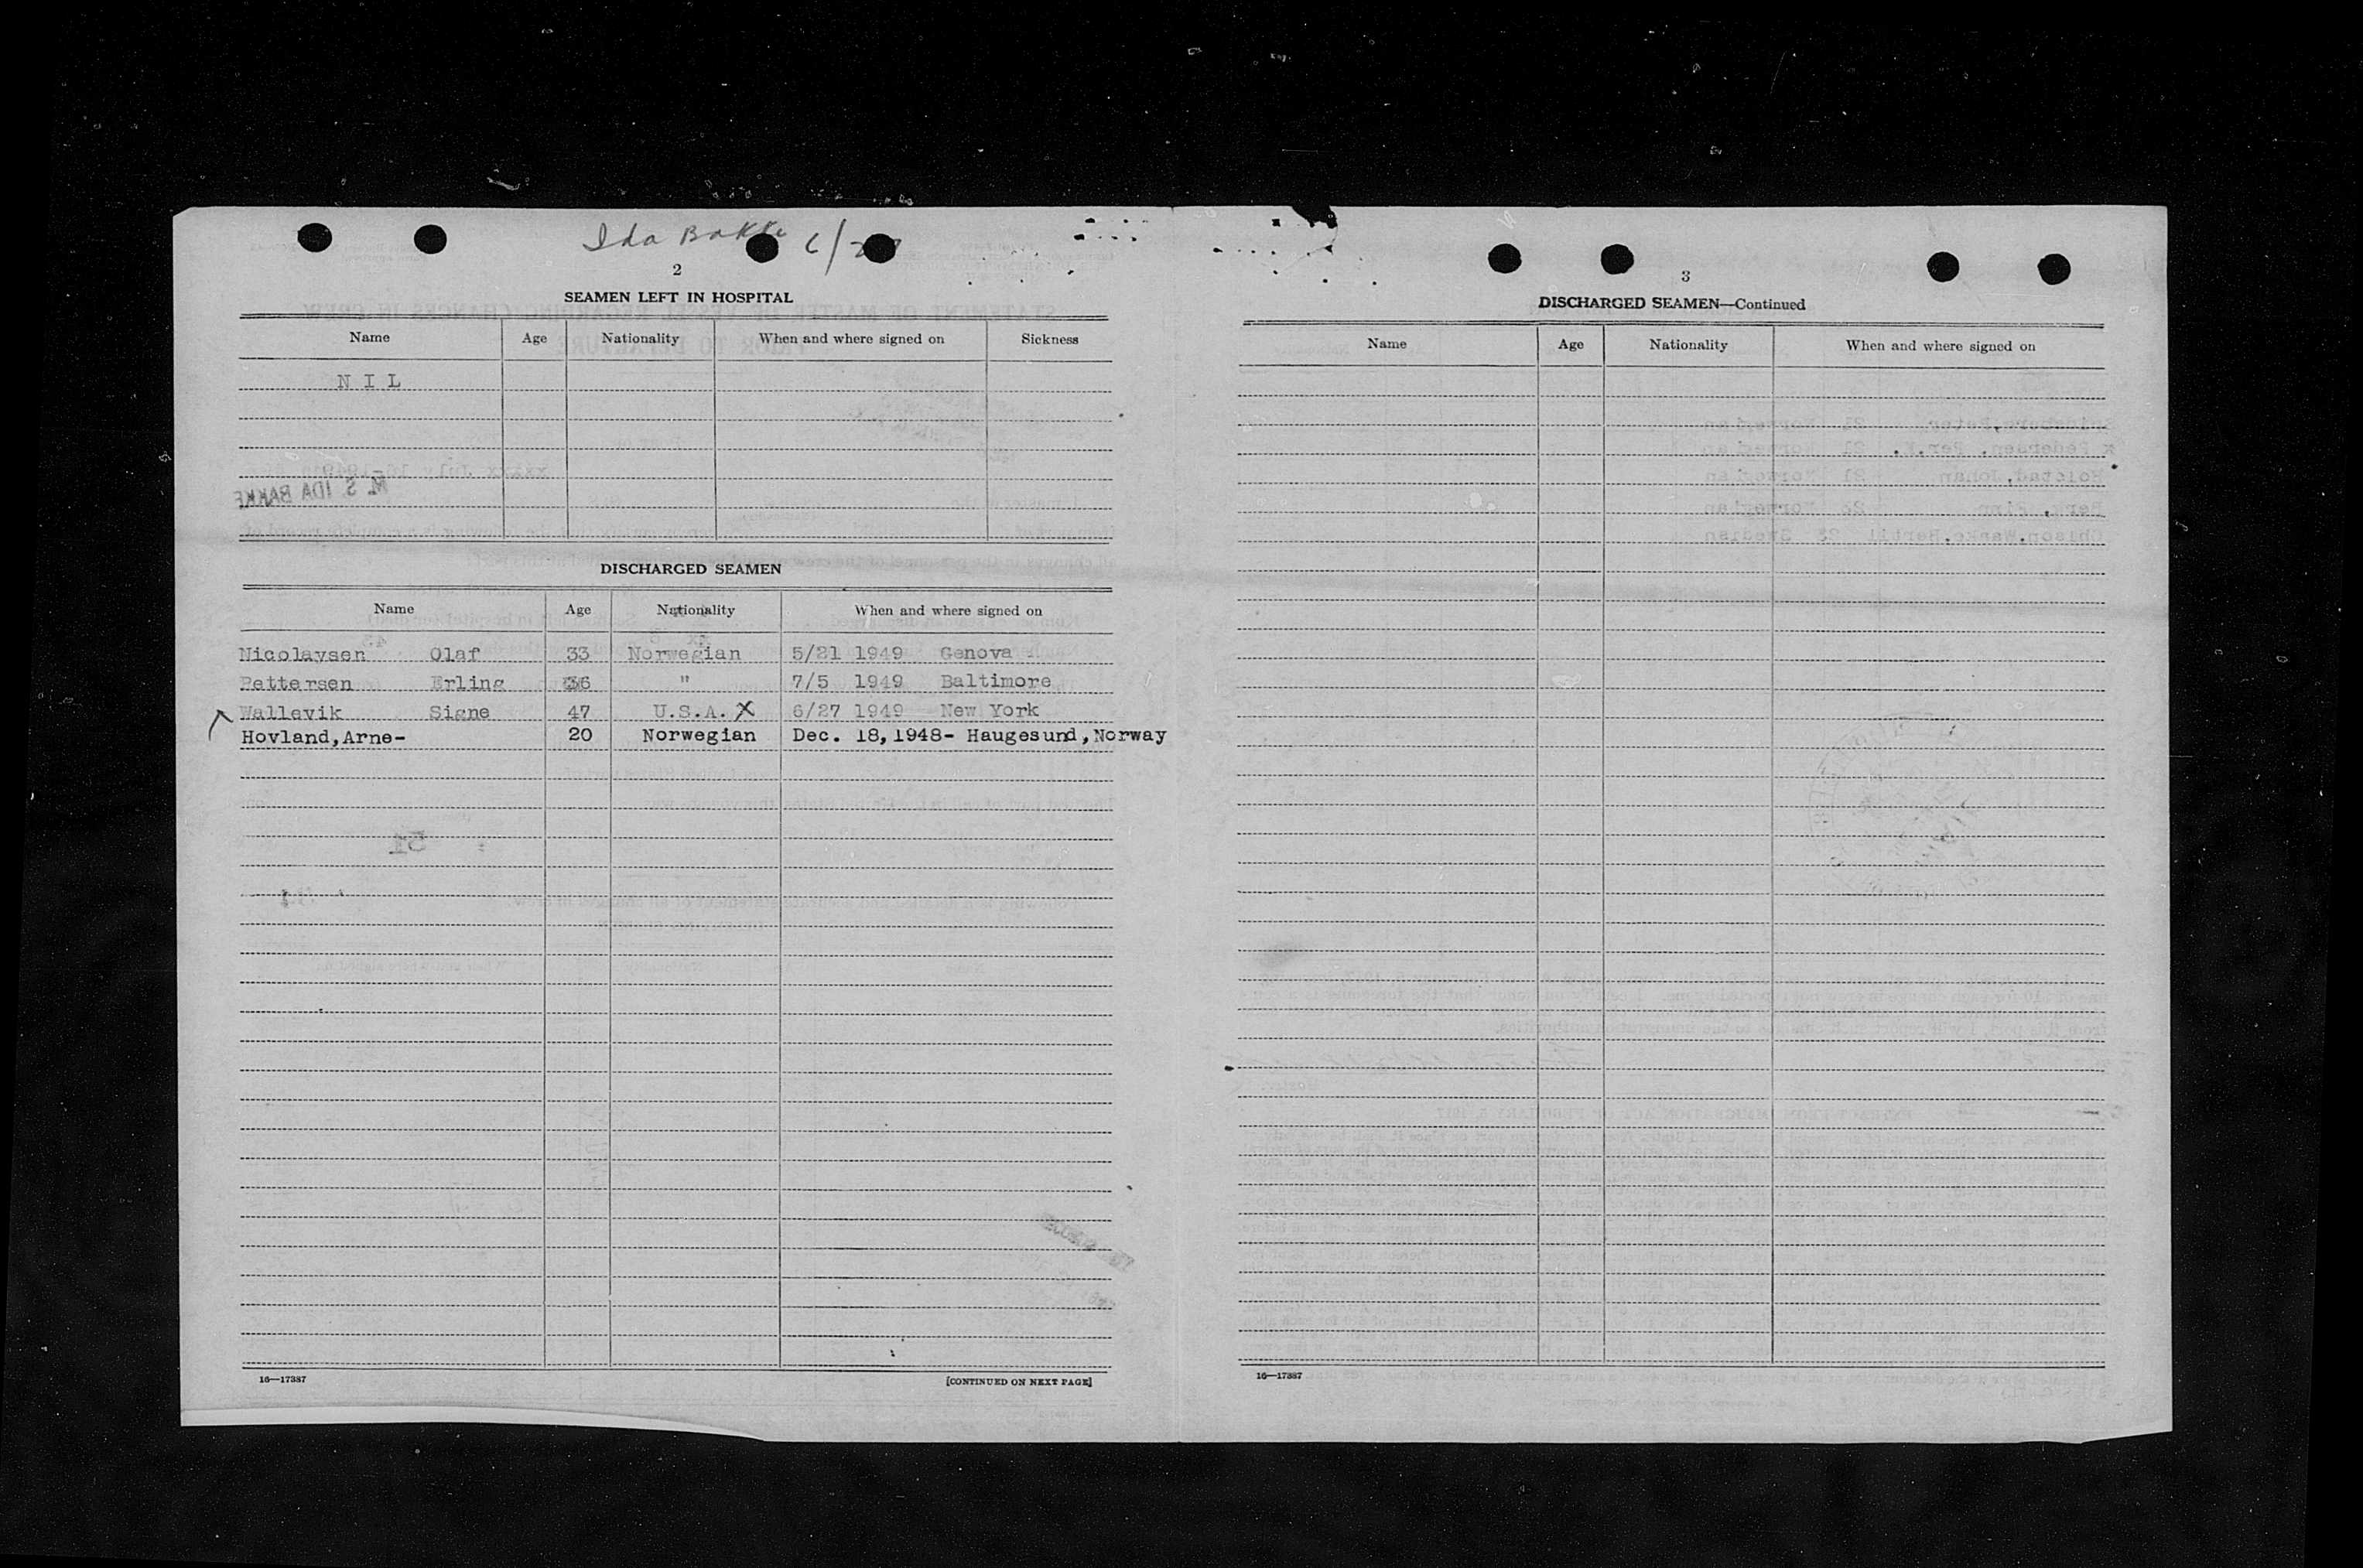 Ida Bakke 6/
2
SEAMEN LEFT IN HOSPITAL
Name Age Nationality When and where signed on Sickness
N I L
M. S. IDA BAKKE
DISCHARGED SEAMEN
Name Age Nationality When and where signed on
Nicolaysen Olaf 33 Norwegian 5/21 1949 Genova
Pettersen Erling 36 " 7/5 1949 Baltimore
Wallevik Signe 47 U.S.A. X 6/27 1949 New York
Hovland,Arne- 20 Norwegian Dec. 18,1948- Haugesund,Norway
16—17387 [CONTINUED ON NEXT PAGE]
3
DISCHARGED SEAMEN—Continued
Name Age Nationality When and where signed on
16—17387